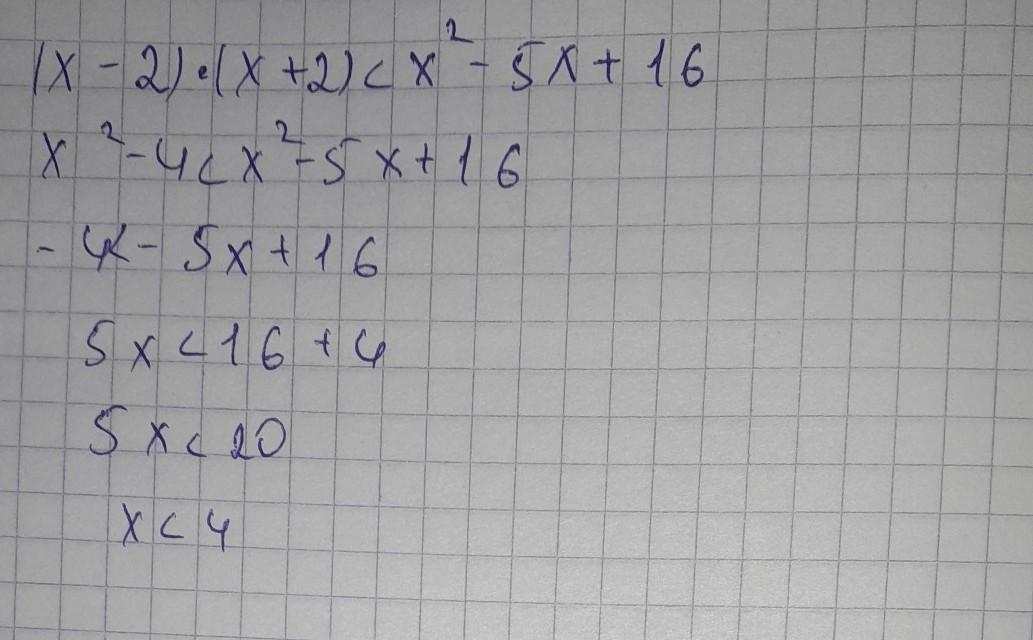 (x - 2) • (x + 2) < x² - 5x + 16
x² - 4 < x² - 5x + 16
- 4 < - 5x + 16
5x < 16 + 4
5x < 20
x < 4